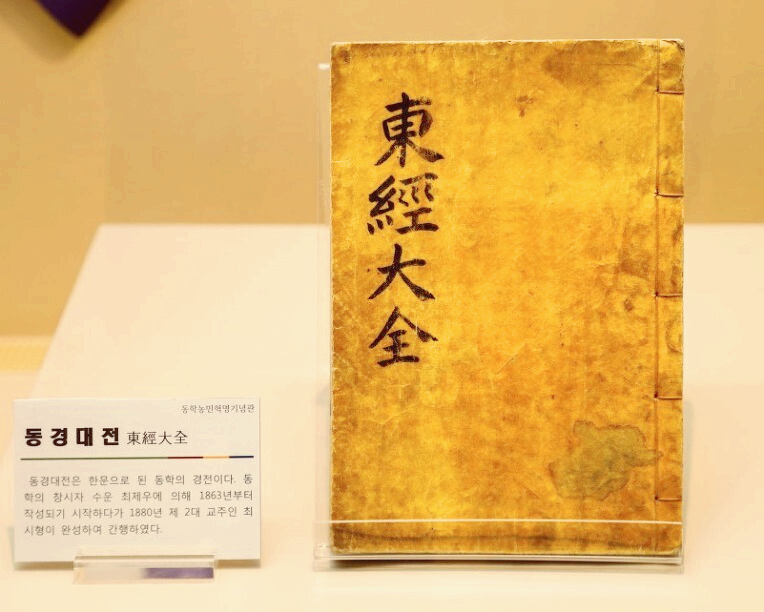 東經大全
동학농민혁명기념관
동경대전 東經大全
동경대전은 한문으로 된 동학의 경전이다. 동
학의 창시자 수운 최제우에 의해 1863년부터
작성되기 시작하다가 1880년 제 2대 교주인 최
시형이 완성하여 간행하였다.